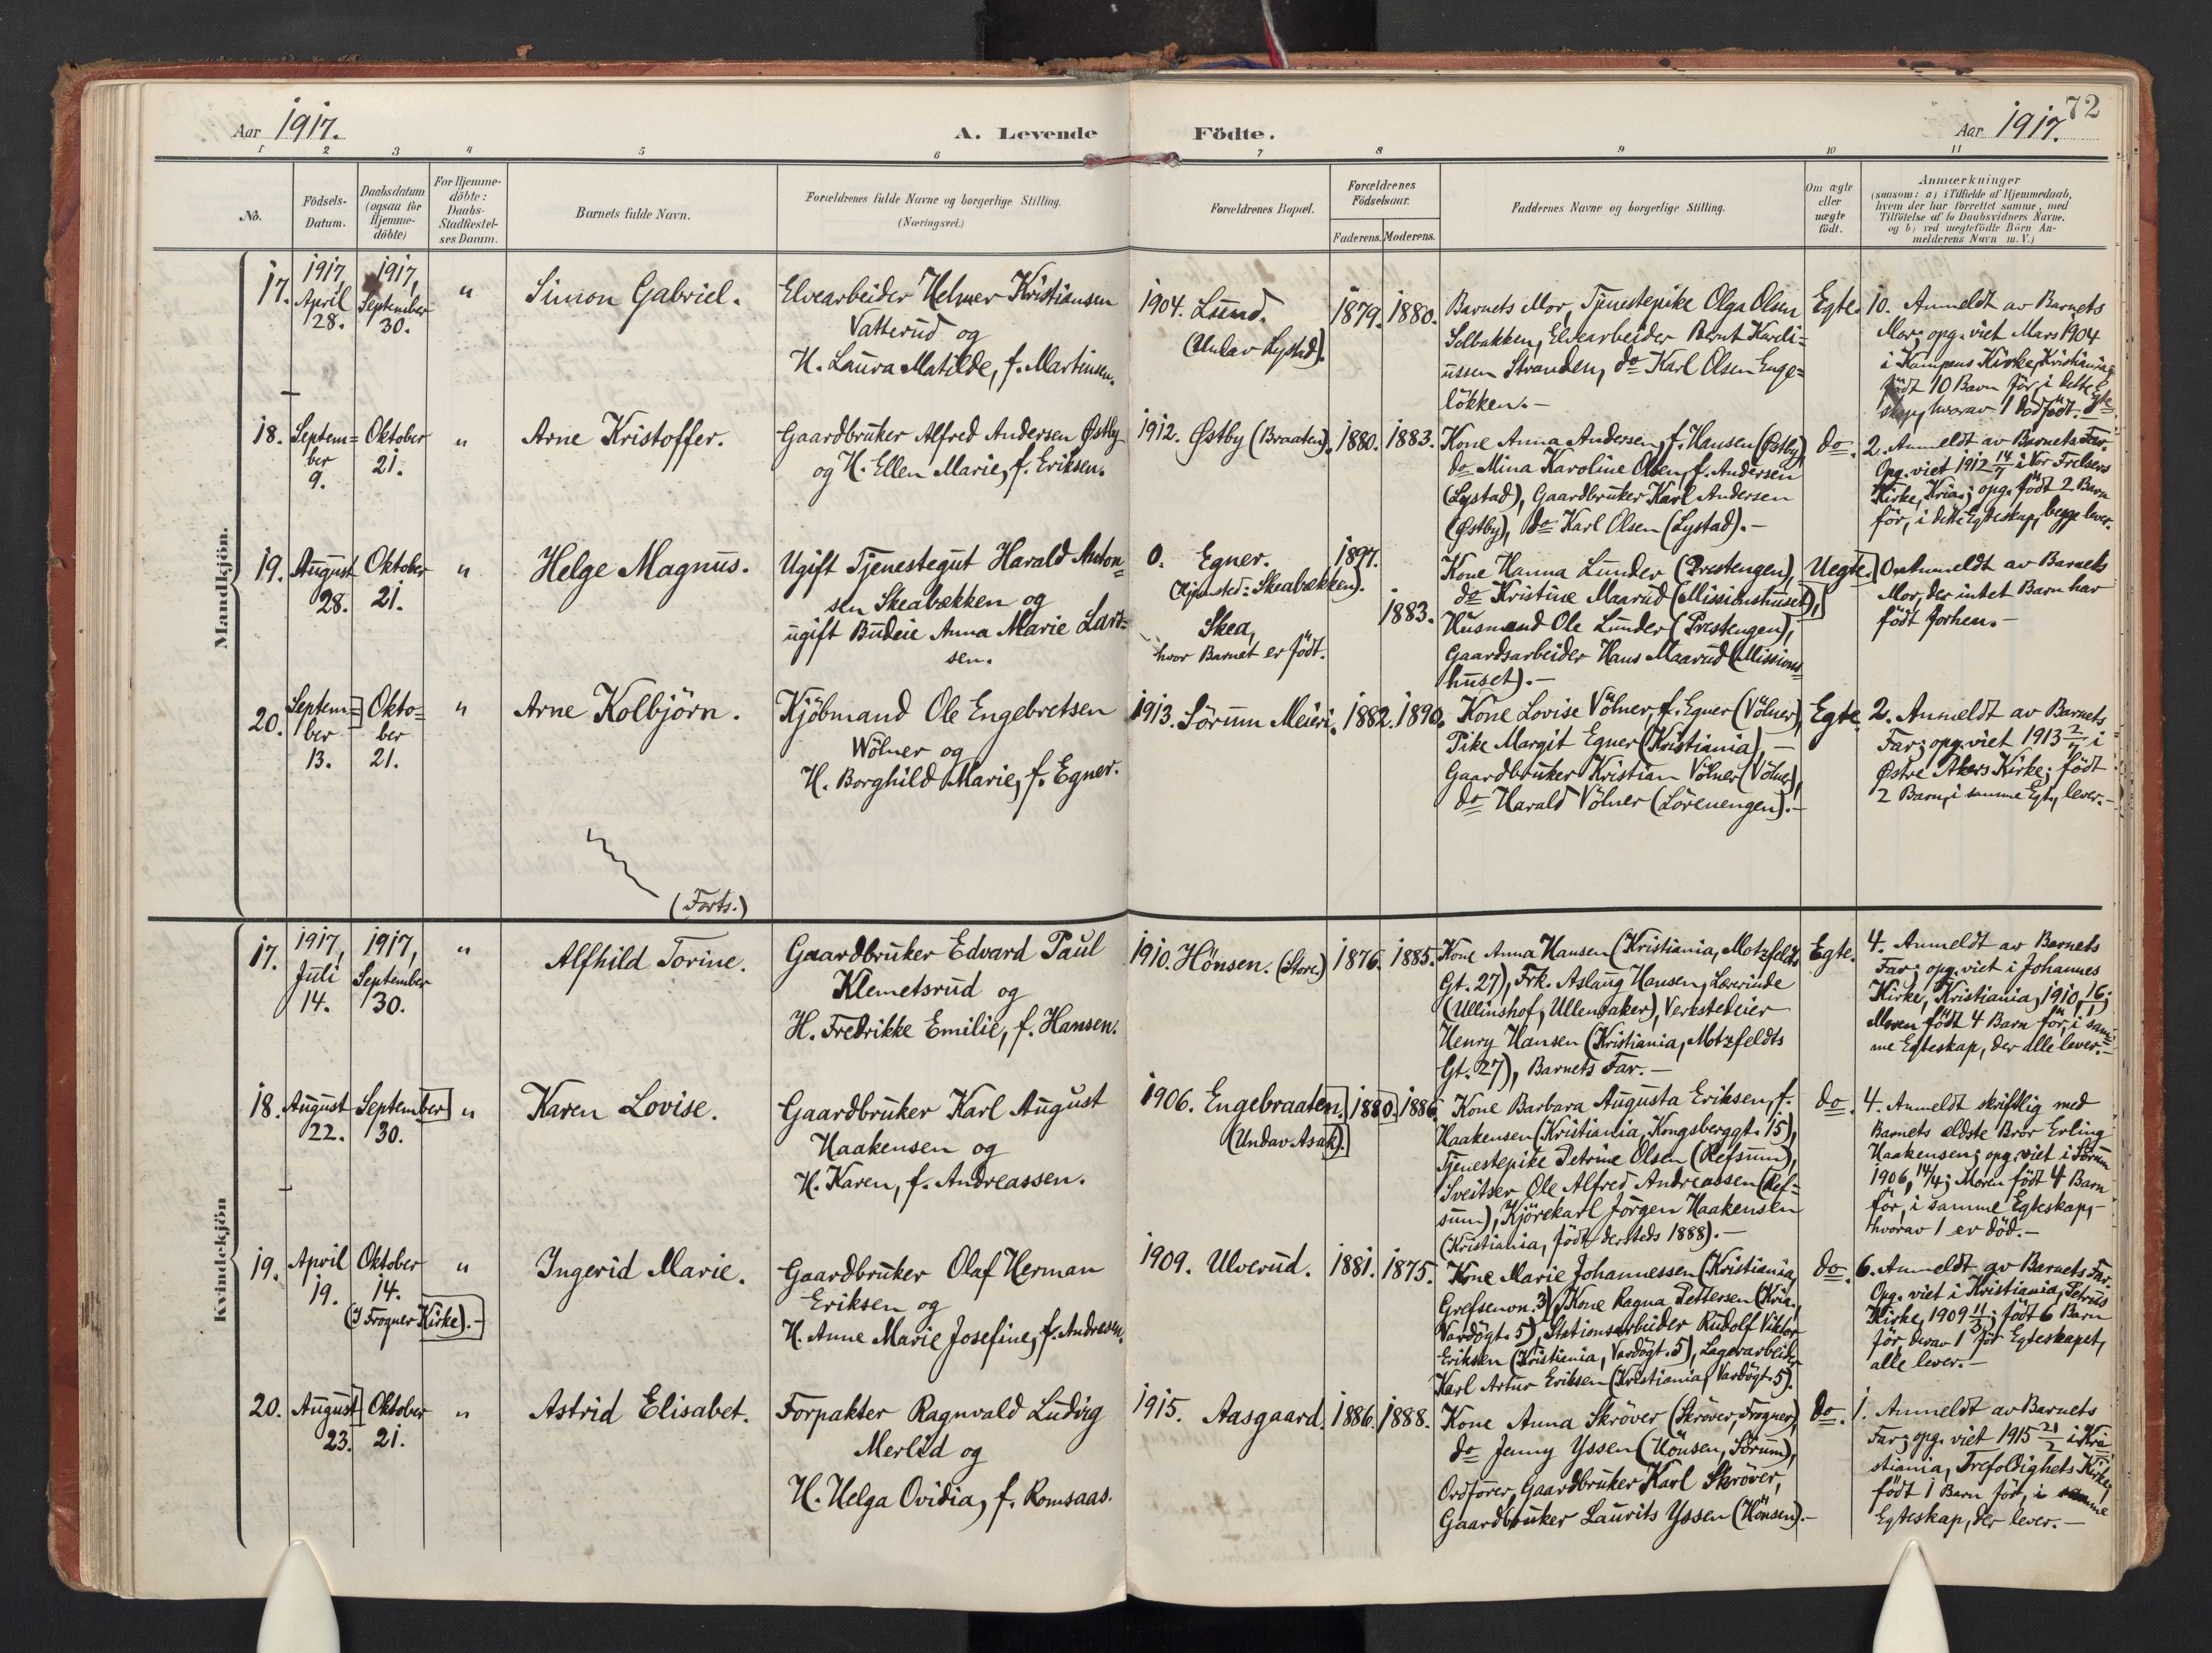 Aar 1917.
A. Levende Födte.
72
Aar 1917.
1 2 3 4 5 6 7 8 9 10 11
No.
Födsels-
Datum.
Daabsdatum
(ogsaa for
Hjemme-
döbte)
For Hjemme-
döbte:
Daabs-
Stadfæstel-
ses Datum.
Barnets fulde Navn.
Forældrenes fulde Navne og borgerlige Stilling.
(Næringsvei.)
Forældrenes Bopæl.
Forældrenes
Födselsaar.
Faderens. Moderens.
Faddernes Navne og borgerlige Stilling.
Om ægte
eller
uægte
födt.
Anmærkninger
(saasom: a) i Tilfælde af Hjemmedaab,
hvem der har forrettet samme, med
Tilföielse af to Daabsvidners Navne.
og b) ved uægtefödte Börn An-
melderens Navn m. V.)
Mandkjön.
17.
1917,
April
28.
1917,
September
30.
"
Simon Gabriel.
Elvearbeider Helmer Kristiansen
Vatterud og
H. Laura Matilde, f. Martinsen.
1904. Lund.
(Undav Lystad).
1879. 1880.
Barnets Mor, Tjenestepike Olga Olsen
Solbakken, Elvearbeider Bernt Kardi=
ussen Stranden, do Karl Olsen Enge=
lökken.-
Egte.
10. Anmeldt av Barnets
Mor; opg. viet Mars 1904
i Kampens Kirke, Kristiania;
födt 10 Barn för i dette Egte=
skap, hvorav 1 dödfödt.
18.
Septem=
ber
9.
Oktober
21.
"
Arne Kristoffer.
Gaardbruker Alfred Andersen Østby
og H. Ellen Marie, f. Eriksen.
1912. Østby (Braaten).
1880. 1883.
Kone Anna Andersen, f. Hansen (Østby)
do Mina Karoline Olsen, f. Andersen
(Lystad), Gaardbruker Karl Andersen
(Østby), do Karl Olsen (Lystad).-
do.
2. Anmeldt av Barnets Far.
Opg. viet 1912 14/7 i Vor Frelsers
Kirke, Kria; opg. födt 2 Barn
för, i dette Egteskap, begge lever.
19.
August
28.
Oktober
21.
"
Helge Magnus.
Ugift Tjenestegut Harald Anton=
sen Skeabækken og
ugift Budeie Anna Marie Lar=
sen.
0. Egner.
(Hjemsted: Skeabækken).
Skea,
hvor Barnet er födt.
1897.
1883.
Kone Hanna Lunder (Prestengen),
do Kristine Maarud (Missionshuset),
Husmand Ole Lunder (Prestengen),
Gaardsarbeider Hans Maarud (Missions=
huset).-
Uegte.
0. Anmeldt av Barnets
Mor, der intet Barn har
födt forhen.-
20.
Septem=
ber
13.
Okto=
ber
21.
"
Arne Kolbjörn.
Kjöbmand Ole Engebretsen
Wölner og
H. Borghild Marie, f. Egner.
1913. Sörum Meieri.
1882. 1890.
Kone Lovise Völner, f. Egner (Völner),
Pike Margit Egner (Kristiania),-
Gaardbruker Kristian Völner (Völner),
do Harald Völner (Lörenengen).-
Egte.
2. Anmeldt av Barnets
Far; opg. viet 1913 2/7 i
Østre Akers Kirke; födt
2 Barn, i samme Egt., lever.-
(Forts.)
Kvindekjön
17.
1917,
Juli
14.
1917,
September
30.
"
Alfhild Torine.
Gaardbruker Edvard Paul
Klemetsrud og
H. Fredrikke Emilie, f. Hansen.
1910. Hönsen. (Store)
1876. 1885.
Kone Anna Hansen (Kristiania, Motzfeldts
Gt. 27), Frk. Aslaug Hansen, Lærerinde
(Ullinshof, Ullensaker), Verkstedeier
Henry Hansen (Kristiania, Motzfeldts
Gt. 27), Barnets Far.-
Egte.
4. Anmeldt av Barnets
Far; opg. viet i Johannes
Kirke, Kristiania, 1910, 16/1;
Moren födt 4 Barn för, i sam=
me Egteskap, der alle lever.-
18.
August
22.
September
30.
"
Karen Lovise.
Gaardbruker Karl August
Haakensen og
H. Karen, f. Andreassen.
1906. Engebraaten.
(Undav Asak).
1880. 1886.
Kone Barbara Augusta Eriksen, f.
Haakensen (Kristiania, Kongsberggt. 15),
Tjenestepike Petrine Olsen (Refsum),
Sveitser Ole Alfred Andreassen (Ref=
sum), Kjörekarl Jörgen Haakensen
(Kristiania, födt dersteds 1888).-
do.
4. Anmeldt skriftlig med
Barnets ældste Bror Erling
Haakensen; opg. viet i Sörum
1906, 14/4; Moren födt 4 Barn
för, i samme Egteskap,-
hvorav 1 er död.-
19.
April
19.
Oktober
14.
(I Frogner Kirke).-
"
Ingerid Marie.
Gaardbruker Olaf Herman
Eriksen og
H. Anne Marie Josefine, f. Andresen.
1909. Ulverud.
1881. 1875.
Kone Marie Johannessen (Kristiania,
Grefsenvn. 3), Kone Ragna Pettersen (Kria.,
Vardögt. 5), Stationsarbeider Rudolf Viktor
Eriksen (Kristiania, Vardögt. 5), Lagerarbeider
Karl Artur Eriksen (Kristiania, Vardögt. 5).
do.
6. Anmeldt av Barnets Far.
Opg. viet i Kristiania, Petrus
Kirke, 1909 11/3; födt 6 Barn
för, derav 1 för Egteskapet,
alle lever.-
20.
August
23.
Oktober
21.
"
Astrid Elisabet.
Forpakter Ragnvald Ludvig
Merlid og
H. Helga Ovidia, f. Romsaas.
1915. Aasgaard.
1886. 1888.
Kone Anna Skröver (Skröver, Frogner),
do Jenny Yssen (Hönsen, Sörum),
Ordförer, Gaardbruker Karl Skröver,
Gaardbruker Laurits Yssen (Hönsen).-
do.
1. Anmeldt av Barnets
Far; opg. viet 1915 21/2 i Kri
stiania, Trefoldighets Kirke,
födt 1 Barn för, i samme
Egteskap, der lever.-